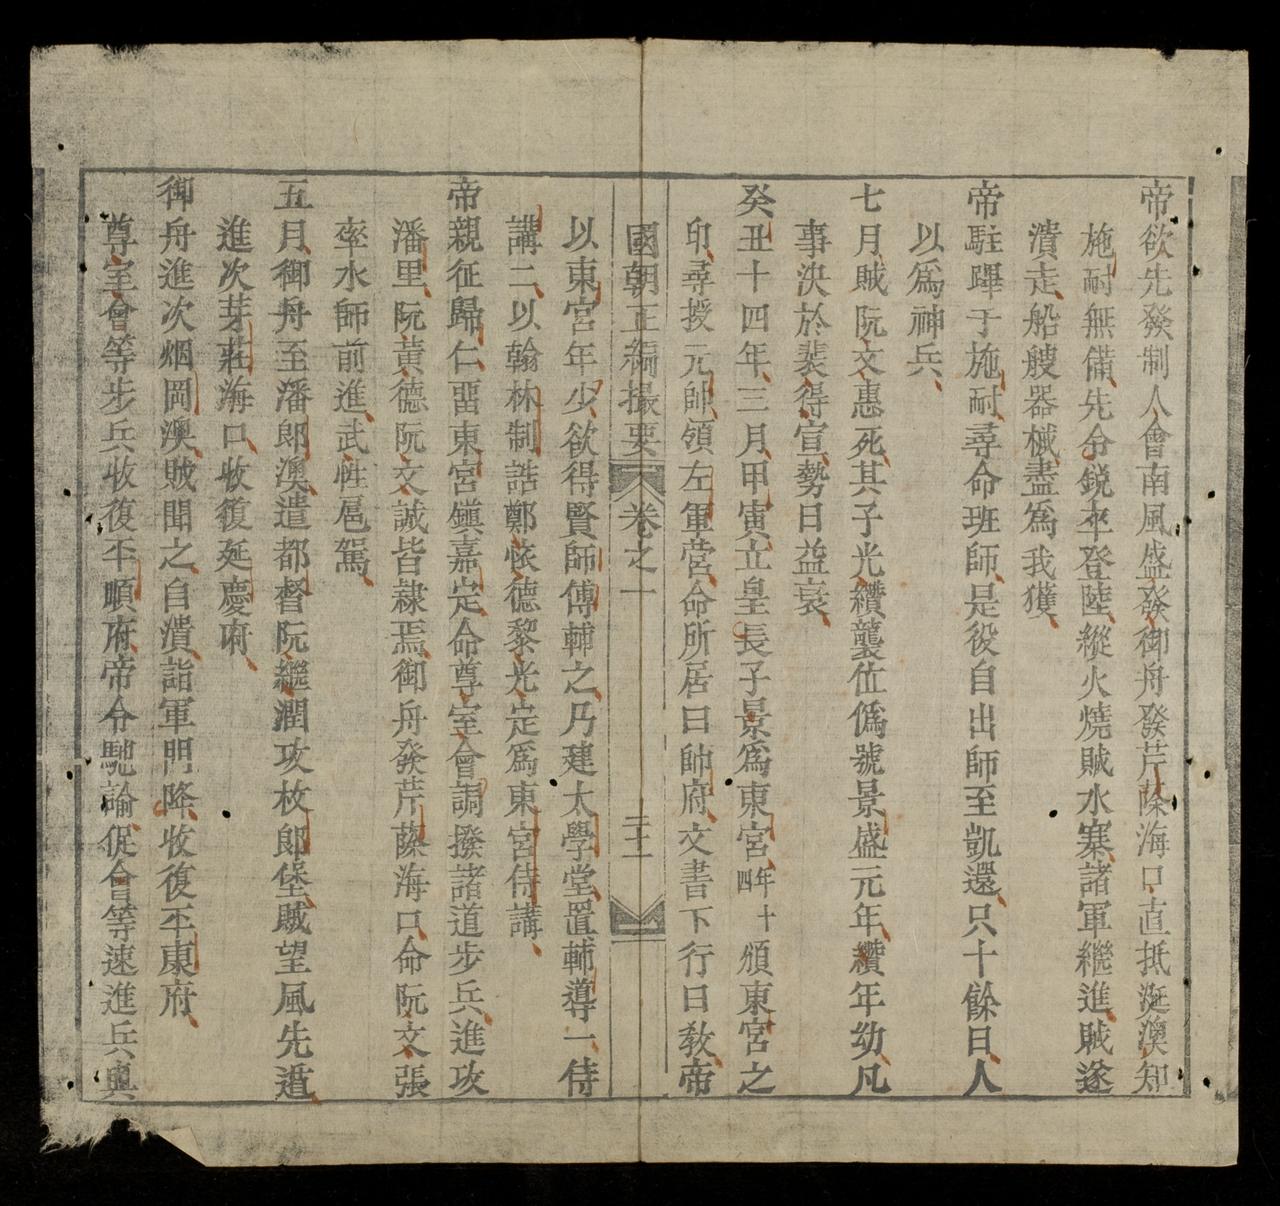 帝欲先發制人會南風盛發御舟發芹蒢海口直抵涎澳知
施耐無備先分鋭卒登陸縱火燒賊水寨諸軍繼進賊遂
潰走船艘器械盡爲我獲
帝駐蹕于施耐尋命班師是役自出師至凱還只十餘日人
以爲神兵
七月賊阮文惠死其子光纘襲位僞號景盛元年纘年幼凡
事決於裴得宣勢日益衰
癸丑十四年三月甲寅立皇長子景爲東宮年十四頒東宮之
印尋授元帥領左軍營命所居曰帥府文書下行曰敎帝
國朝正編撮要 卷之一 二十一
以東宮年少欲得賢師傅輔之乃建太學堂置輔導一侍
講二以翰林制誥鄭恢德黎光定爲東宮侍講
帝親征歸仁畱東宮鎭嘉定命尊室會調撥諸道步兵進攻
潘里阮黃德阮文誠皆隷焉御舟發芹蒢海口命阮文張
率水師前進武性扈駕
五月御舟至潘郎澳遣都督阮繼潤攻枚郎堡賊望風先遁
進次芽莊海口收復延慶府
御舟進次烟岡澳賊聞之自潰詣軍門降收復平康府
尊室會等步兵收復平順府帝令馳諭促會等速進兵與